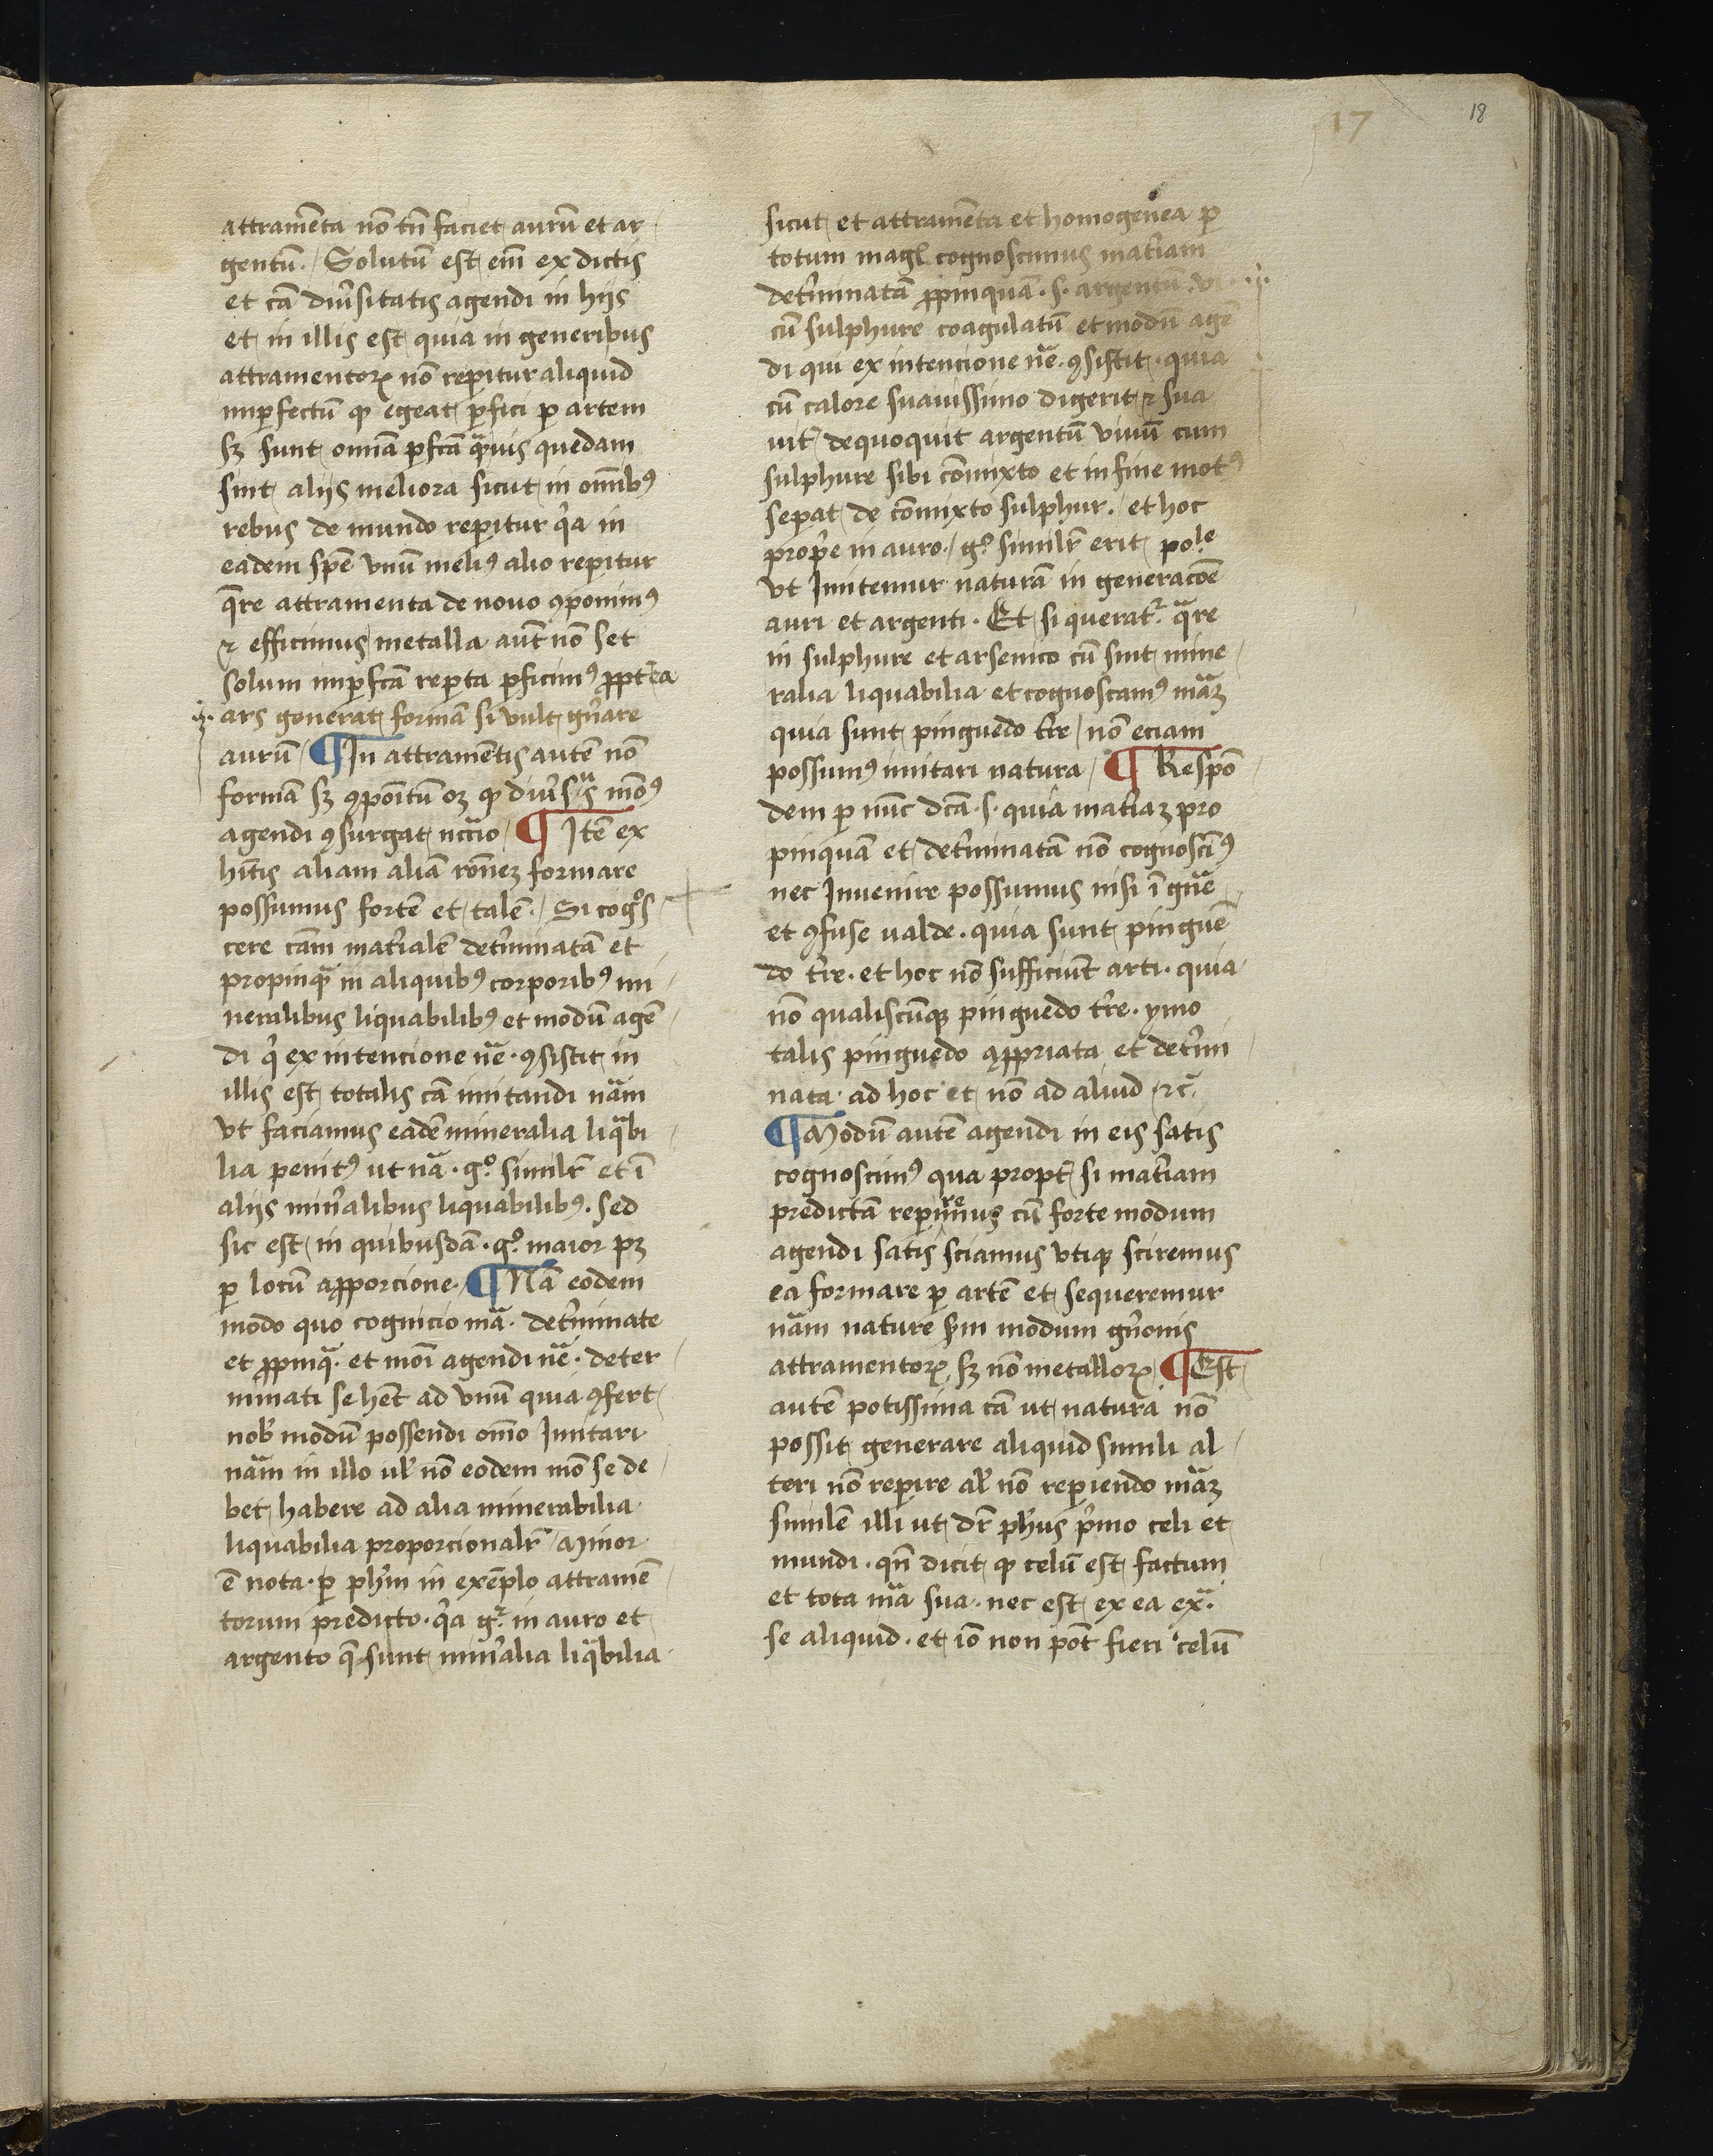 17
18
attramēta nō tn̄ faciet aurū et ar
gentū. Solutū est em̄ ex dictis
et cā diu'sitatis agendi in hijs
et in illis est quia in generibus
attramentoꝝ nō reperitur aliquid
imꝑfectū ꝙ egeat ꝑfici ꝑ artem
sꝫ sunt om̄ia ꝑfcā qᵃuis quedam
sint alijs meliora sicut in om̄ibꝰ
rebus de mundo reperitur qͥa in
eadem spē vnū meliꝰ alio reperitur
qᵃre attramenta de nouo ꝯponimꝰ
⁊ efficimus metalla aūt nō set
solum imꝑfcā reperta ꝑficimꝰ ꝓpt'ea
ars generat formā si vult gn̄are
aurū ¶ In attramētis autē nō
formā sꝫ ꝯpoītū oꝫ ꝙ diu'sᵃs mōꝰ
agendi ꝯsurgat nccͣio ¶ Itē ex
hītis aliam aliā rōneꝫ formare
possumus fortē et talē. Si cogᵒs
cere cām mat'ialē det'minatā et
propinqᵃ in aliquibꝰ corporibꝰ mi
neralibus liquabilibꝰ et modū agē
di qͥ ex intencione nͣe. ꝯsistit in
illis est totalis cā imitandi nͣam
vt faciamus eadē mineralia liqᵃbi
lia penitꝰ ut nͣa. gᵒ simil'r et ī
alijs min'alibus liquabilibꝰ. sed
sic est in quibusdā. gᵒ maior pꝫ
ꝑ locū a ꝓporcione. ¶ Nā eodem
modo quo cognicio mͣa. det'minate
et ꝓpinqᵃ. et moī agendi nͣe. deter
minati se hēt ad vnū quia ꝯfert
nob' modū possendi om̄o Imitari
nͣam in illo ul' nō eodem mō se de
bet habere ad alia minerabilia
liquabilia proporcional'r Minor
ē nota. ꝑ ph'm in exēplo attramē
torum predicto. qͥa gʳ in auro et
argento q̄ sunt min'alia liqᵃbilia
sicut et attramēta et homogenea ꝑ
totum magl cognoscimus mat'iam
det'minatā ꝓpinquā. s. argentū vi
cū sulphure coagulatū et modū agē
di qui ex intencione nͣe. ꝯsistit. quia
cū calore suauissimo digerit ⁊ sua
uit' dequoquit argentū viuū cum
sulphure sibi cōmixto et in fine motꝰ
seꝑat de cōmixto sulphur. et hoc
prop'e in auro. gᵒ simil'r erit poˡᵉ
vt Imitemur naturā in generacōe
auri et argenti. Et si queratʳ qᵃre
in sulphure et arsenico cū sint mine
ralia liquabilia et cognoscamꝰ mͣaꝫ
quia sunt pinguedo t're nō eciam
possumꝰ imitari natura ¶ Respō
dem ꝑ nūc dcā. s. quia mat'iaꝫ pro
pinquā et det'minatā nō cognoscīꝰ
nec Invenire possumus nisi ī gn̄e
et ꝯfuse ualde. quia sunt pinguē
do t're. et hoc nō sufficiūt arti. quia
nō qualiscūqꝫ pinguedo t're. ymo
talis pinguedo aꝓpriata et det'mi
nata ad hoc et nō ad aliud ⁊cͣ.
¶ Modū autē agendi in eis satis
cognoscimꝰ qua propt' si mat'iam
predictā reperiremus cū forte modum
agendi satis sciamus vtiqꝫ sciremus
ea formare ꝑ artē et sequeremur
nͣam nature s'm modum gn̄onis
attramentoꝝ sꝫ nō metalloꝝ ¶ Est
autē potissima cā ut natura nō
possit generare aliquid simili al
teri nō reperire al' nō reperiendo mͣaꝫ
similē illi ut dr̄ ph'us pͥmo celi et
mundi. qn̄ dicit ꝙ celū est factum
et tota mͣa sua. nec est ex ea exͣ.
se aliquid. et iō non pōt fieri celū